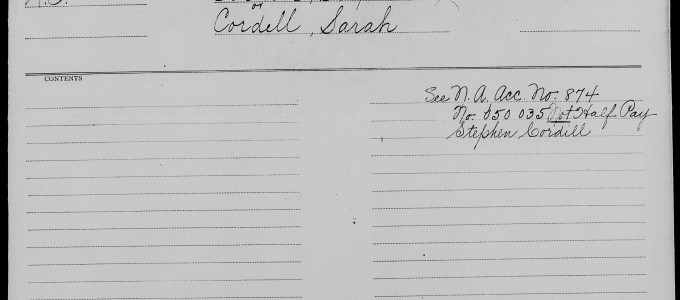 or
Cordell, Sarah
CONTENTS
See N.A. Acc. No. 874
No. 050 035 Not Half Pay
Stephen Cordill